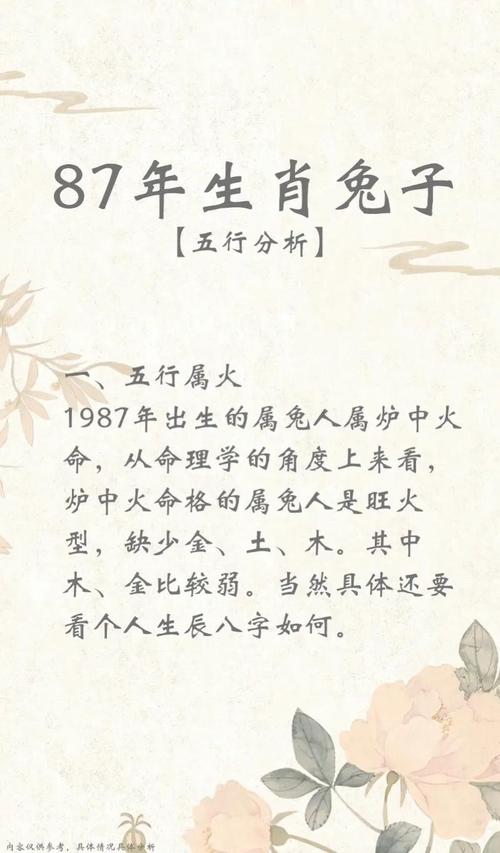 87年生肖兔子
【五行分析】
一、五行属火
1987年出生的属兔人属炉中火
命，从命理学的角度上来看，
炉中火命格的属兔人是旺火
型，缺少金、土、木。其中
木、金比较弱。当然具体还要
看个人生辰八字如何。
内容仅供参考，具体情况具体分析